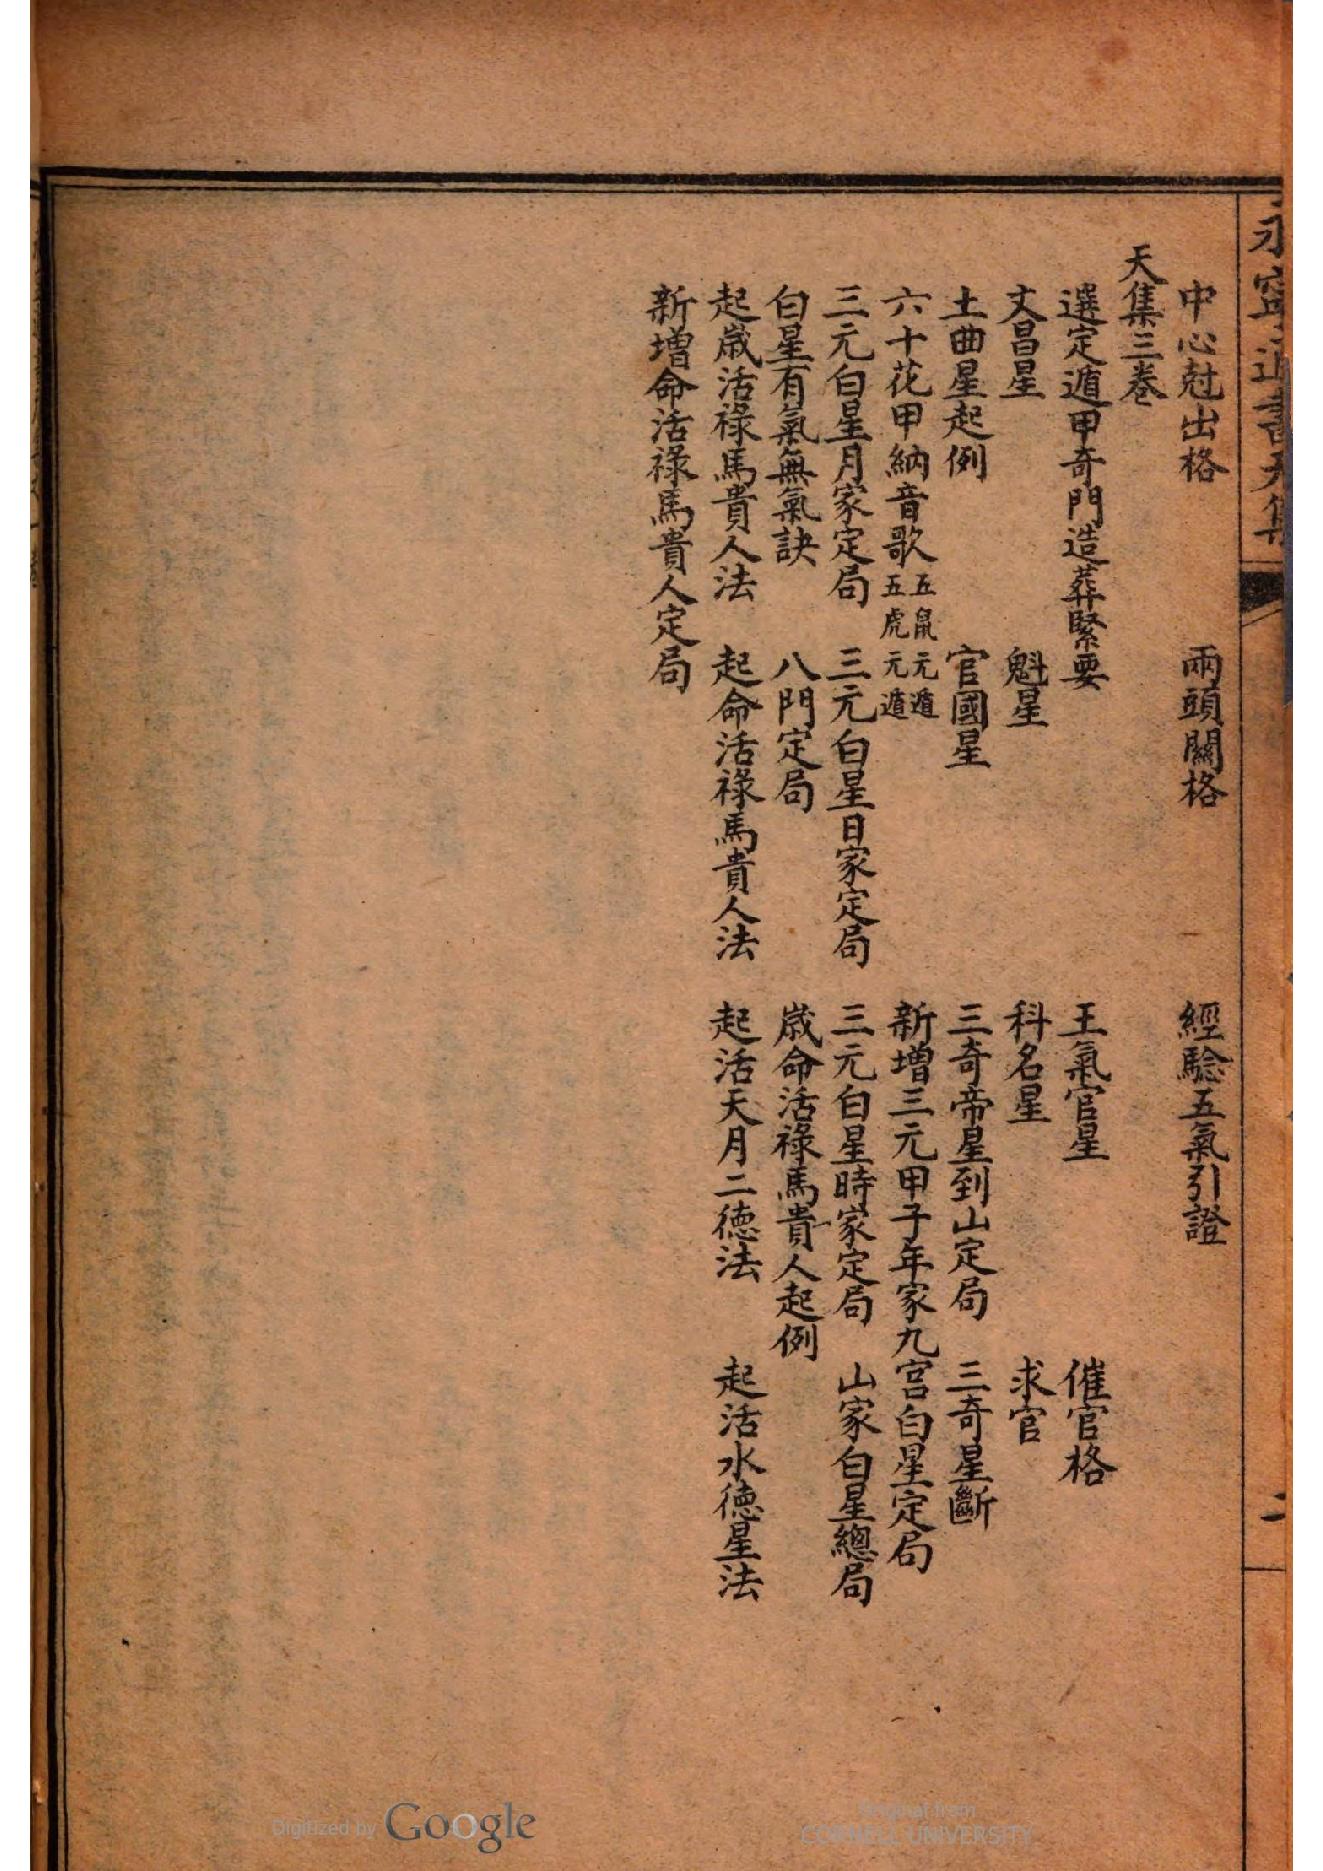 永寧通書天集
中心尅出格　兩頭關格　經驗五氣引證
天集三卷
選定遁甲奇門造葬緊要　王氣官星　催官格
文昌星　魁星　科名星　求官
土曲星起例　官國星　三奇帝星到山定局　三奇星斷
六十花甲納音歌　五鼠元遁　五虎元遁　新增三元甲子年家九宮白星定局
三元白星月家定局　三元白星日家定局　三元白星時家定局　山家白星總局
白星有氣無氣訣　八門定局　歲命活祿馬貴人起例
起歲活祿馬貴人法　起命活祿馬貴人法　起活天月二德法　起活水德星法
新增命活祿馬貴人定局
Digitized by Google
Original from
CORNELL UNIVERSITY